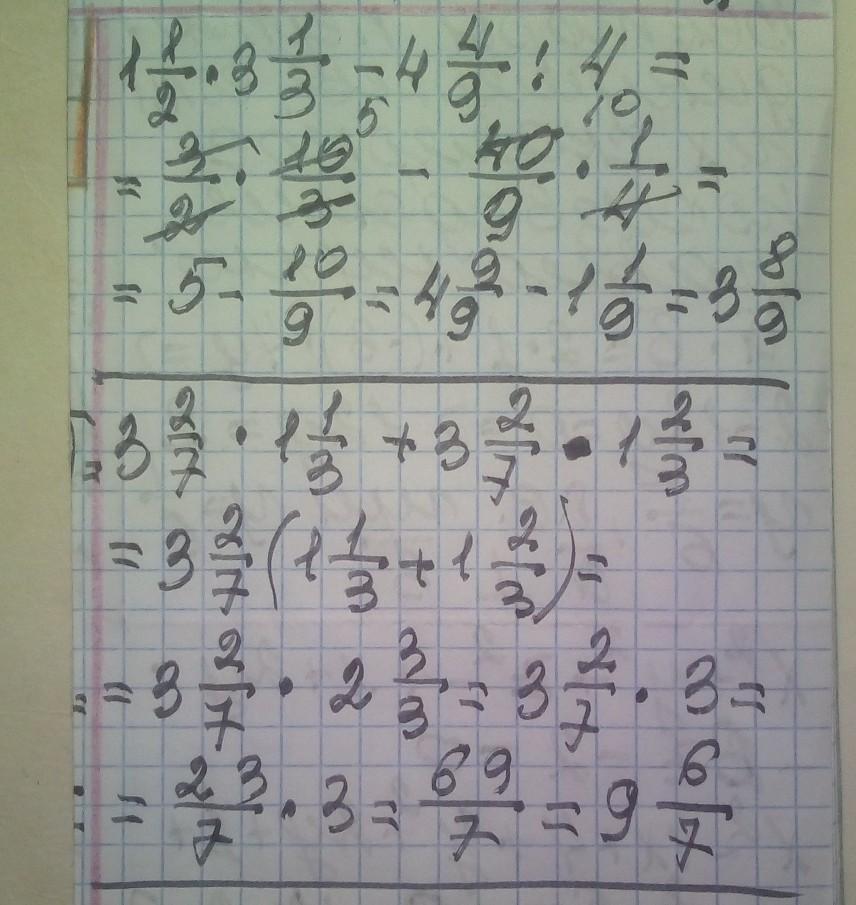 1 1/2 · 3 1/3 - 4 4/9 : 4 =
= 3/2 · 10/3 5 - 40/9 · 10 1/4 =
= 5 - 10/9 = 4 9/9 - 1 1/9 = 3 8/9
= 3 2/7 · 1 1/3 + 3 2/7 · 1 2/3 =
= 3 2/7 (1 1/3 + 1 2/3) =
= 3 2/7 · 2 3/3 = 3 2/7 · 3 =
= 23/7 · 3 = 69/7 = 9 6/7